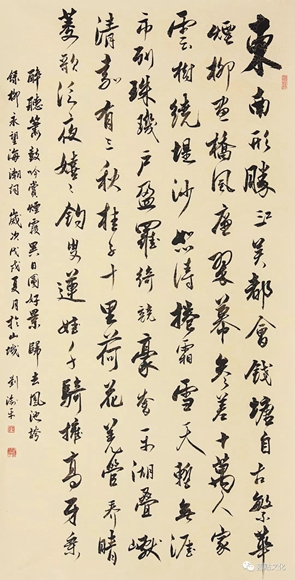 東南形勝江吴都會錢塘自古繁華
煙柳畫橋風簾翠幕參差十萬人家
雲樹繞堤沙怒濤捲霜雪天塹無涯
市列珠璣户盈羅綺競豪奢重湖疊巘
清嘉有三秋桂子十里荷花羌管弄晴
菱歌泛夜嬉〻釣叟蓮娃千騎擁高牙乘
醉聽簫鼓吟賞煙霞異日圖好景歸去鳳池誇
柳永望海潮詞 歲次戊戌夏月於山城 劉